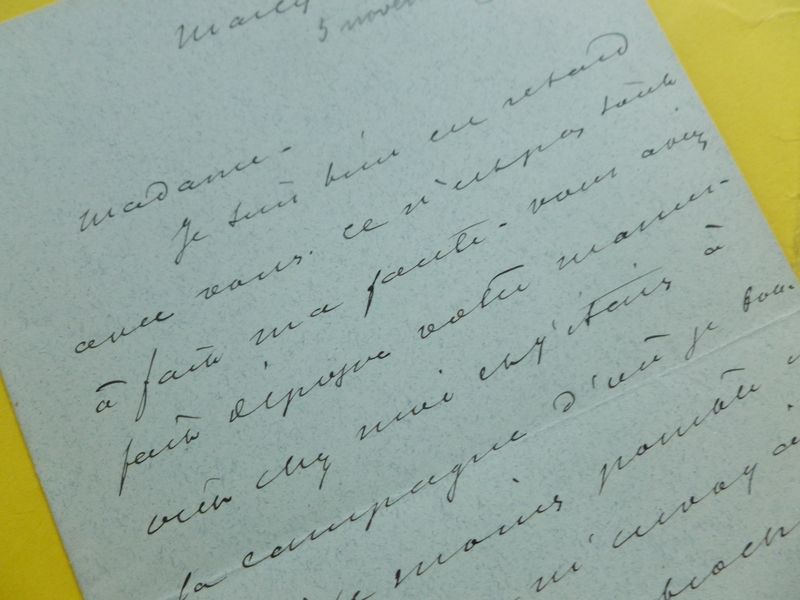 Marly
5 novem
Madame.
Je suis bien en retard
avec vous. ce n'est pas tout
à fait ma faute. vous aviez
fait déposer votre manus-
crit chez moi et j'étais à
la campagne d'où je
moins possible
m'envoya